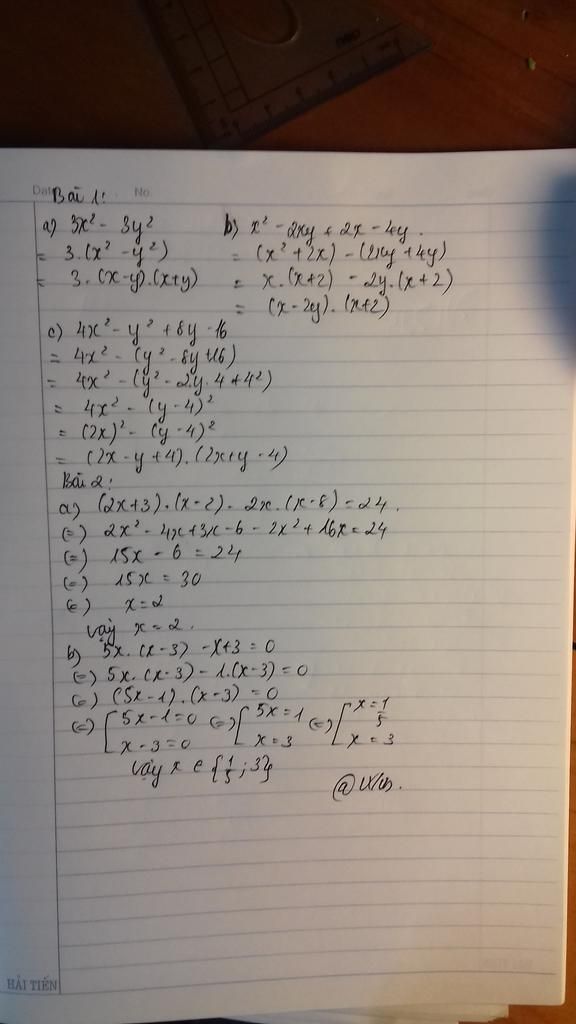 Date No.
Bài 1:
a) 3x² - 3y²
= 3.(x² - y²)
= 3.(x-y).(x+y)
b) x² - 2xy + 2x - 4y.
= (x² + 2x) - (2xy + 4y)
= x.(x+2) - 2y.(x+2)
= (x-2y).(x+2)
c) 4x² - y² + 8y - 16
= 4x² - (y² - 8y + 16)
= 4x² - (y² - 2.y.4 + 4²)
= 4x² - (y - 4)²
= (2x)² - (y - 4)²
= (2x - y + 4).(2x + y - 4)
Bài 2:
a) (2x+3).(x-2) - 2x.(x-8) = 24.
(=) 2x² - 4x + 3x - 6 - 2x² + 16x = 24
(=) 15x - 6 = 24
(=) 15x = 30
(=) x = 2
vậy x = 2.
b) 5x.(x-3) - x + 3 = 0
(=) 5x.(x-3) - 1.(x-3) = 0
(=) (5x-1).(x-3) = 0
(=) [5x-1=0 (=) [5x=1 (=) [x=1/5
x-3=0 x=3 x=3
Vậy x ∈ {1/5; 3}
HẢI TIẾN